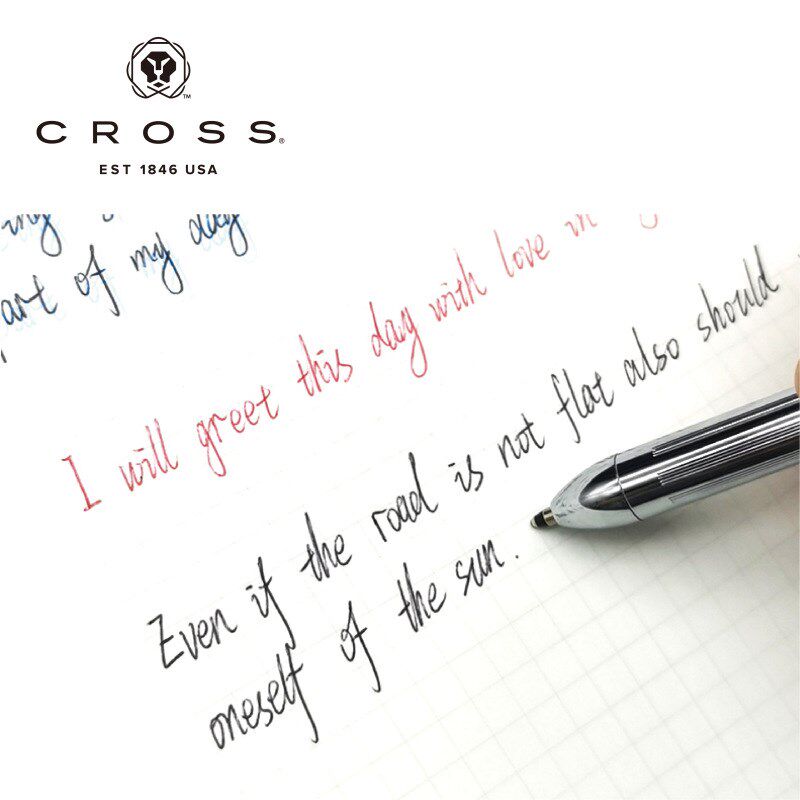 CROSS®
EST 1846 USA
part of my day
I will greet this day with love in
Even if the road is not flat also should
oneself of the sun.